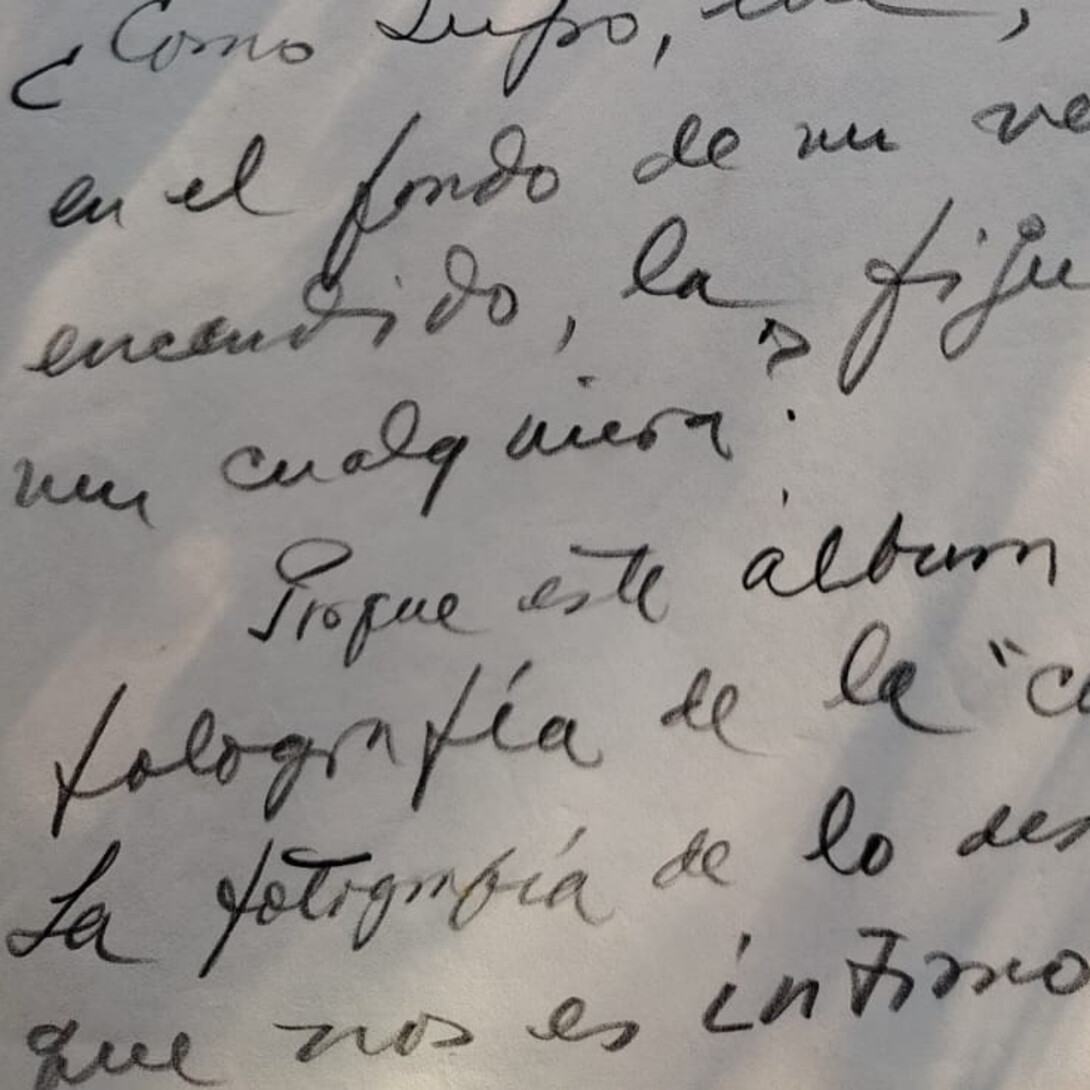 ¿Como supo,
en el fondo de un
encendido, la
un cualquiera?
Porque este álbum
fotografía de la "
La fotografía de lo
que nos es íntimo